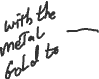 with the
metal
Gold to